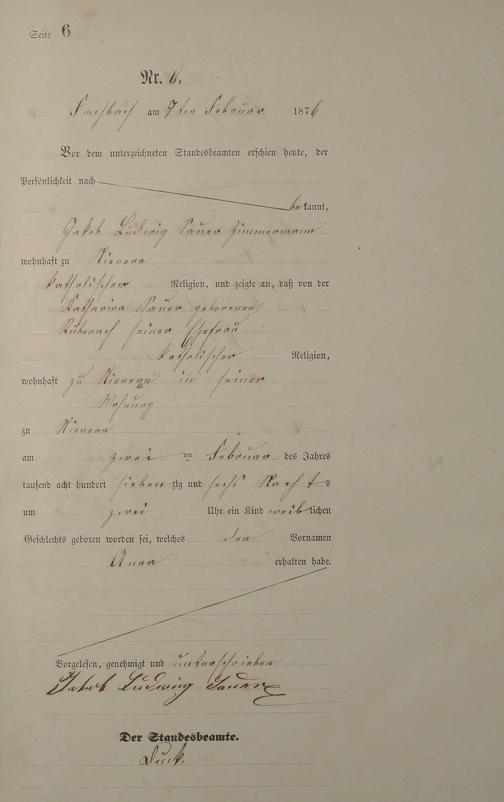 Seite 6
Nr. 6.
Fachbach am 7ten Februar 1876
Vor dem unterzeichneten Standesbeamten erschien heute, der
Persönlichkeit nach
bekannt,
Jakob Ludwig Sauer Zimmermann
wohnhaft zu Nievern
katholischer Religion, und zeigte an, daß von der
Katharina Sauer geborenen
Rubenach seiner Ehefrau
katholischer Religion,
wohnhaft zu Nievern in seiner
Wohnung
zu Nievern
am zwei ten Februar des Jahres
tausend acht hundert sieben zig und sechs Nachts
um zwei Uhr ein Kind weiblichen
Geschlechts geboren worden sei, welches den Vornamen
Anna erhalten habe.
Vorgelesen, genehmigt und unterschrieben
Jakob Ludwig Sauer
Der Standesbeamte.